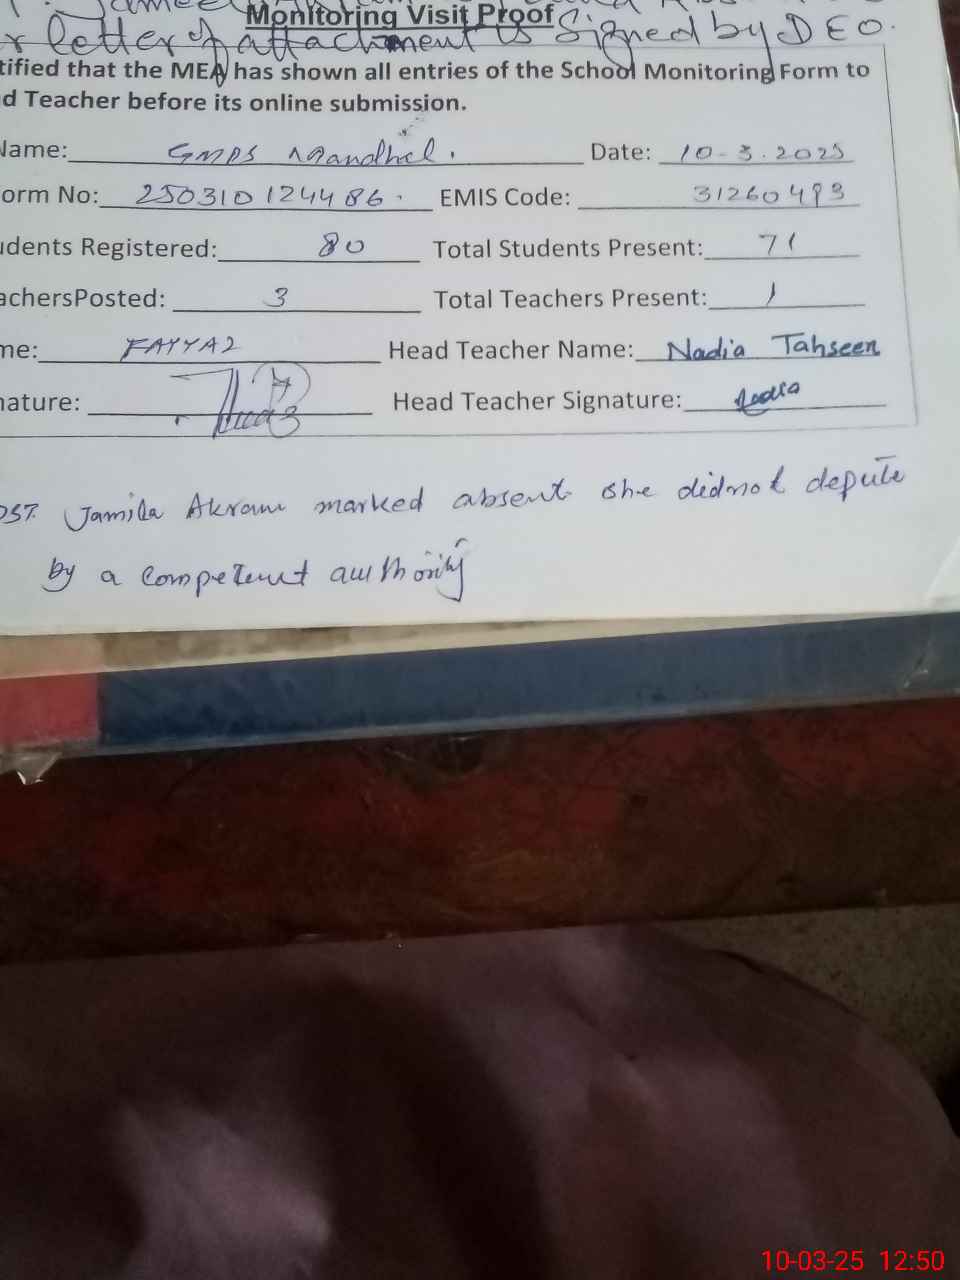 Monitoring Visit Proof
r letter of attachment is Signed by DEO.
tified that the MEA has shown all entries of the School Monitoring Form to
d Teacher before its online submission.
Name: GMPS Date: 10-3-2025
orm No: 250310124486. EMIS Code: 31260493
udents Registered: 80 Total Students Present: 71
achersPosted: 3 Total Teachers Present: 1
me: FAYYAZ Head Teacher Name: Nadia Tahseen
nature: Head Teacher Signature: Nadia
PST. Jamila Akram marked absent she didnot depute
by a competent authority
10-03-25 12:50